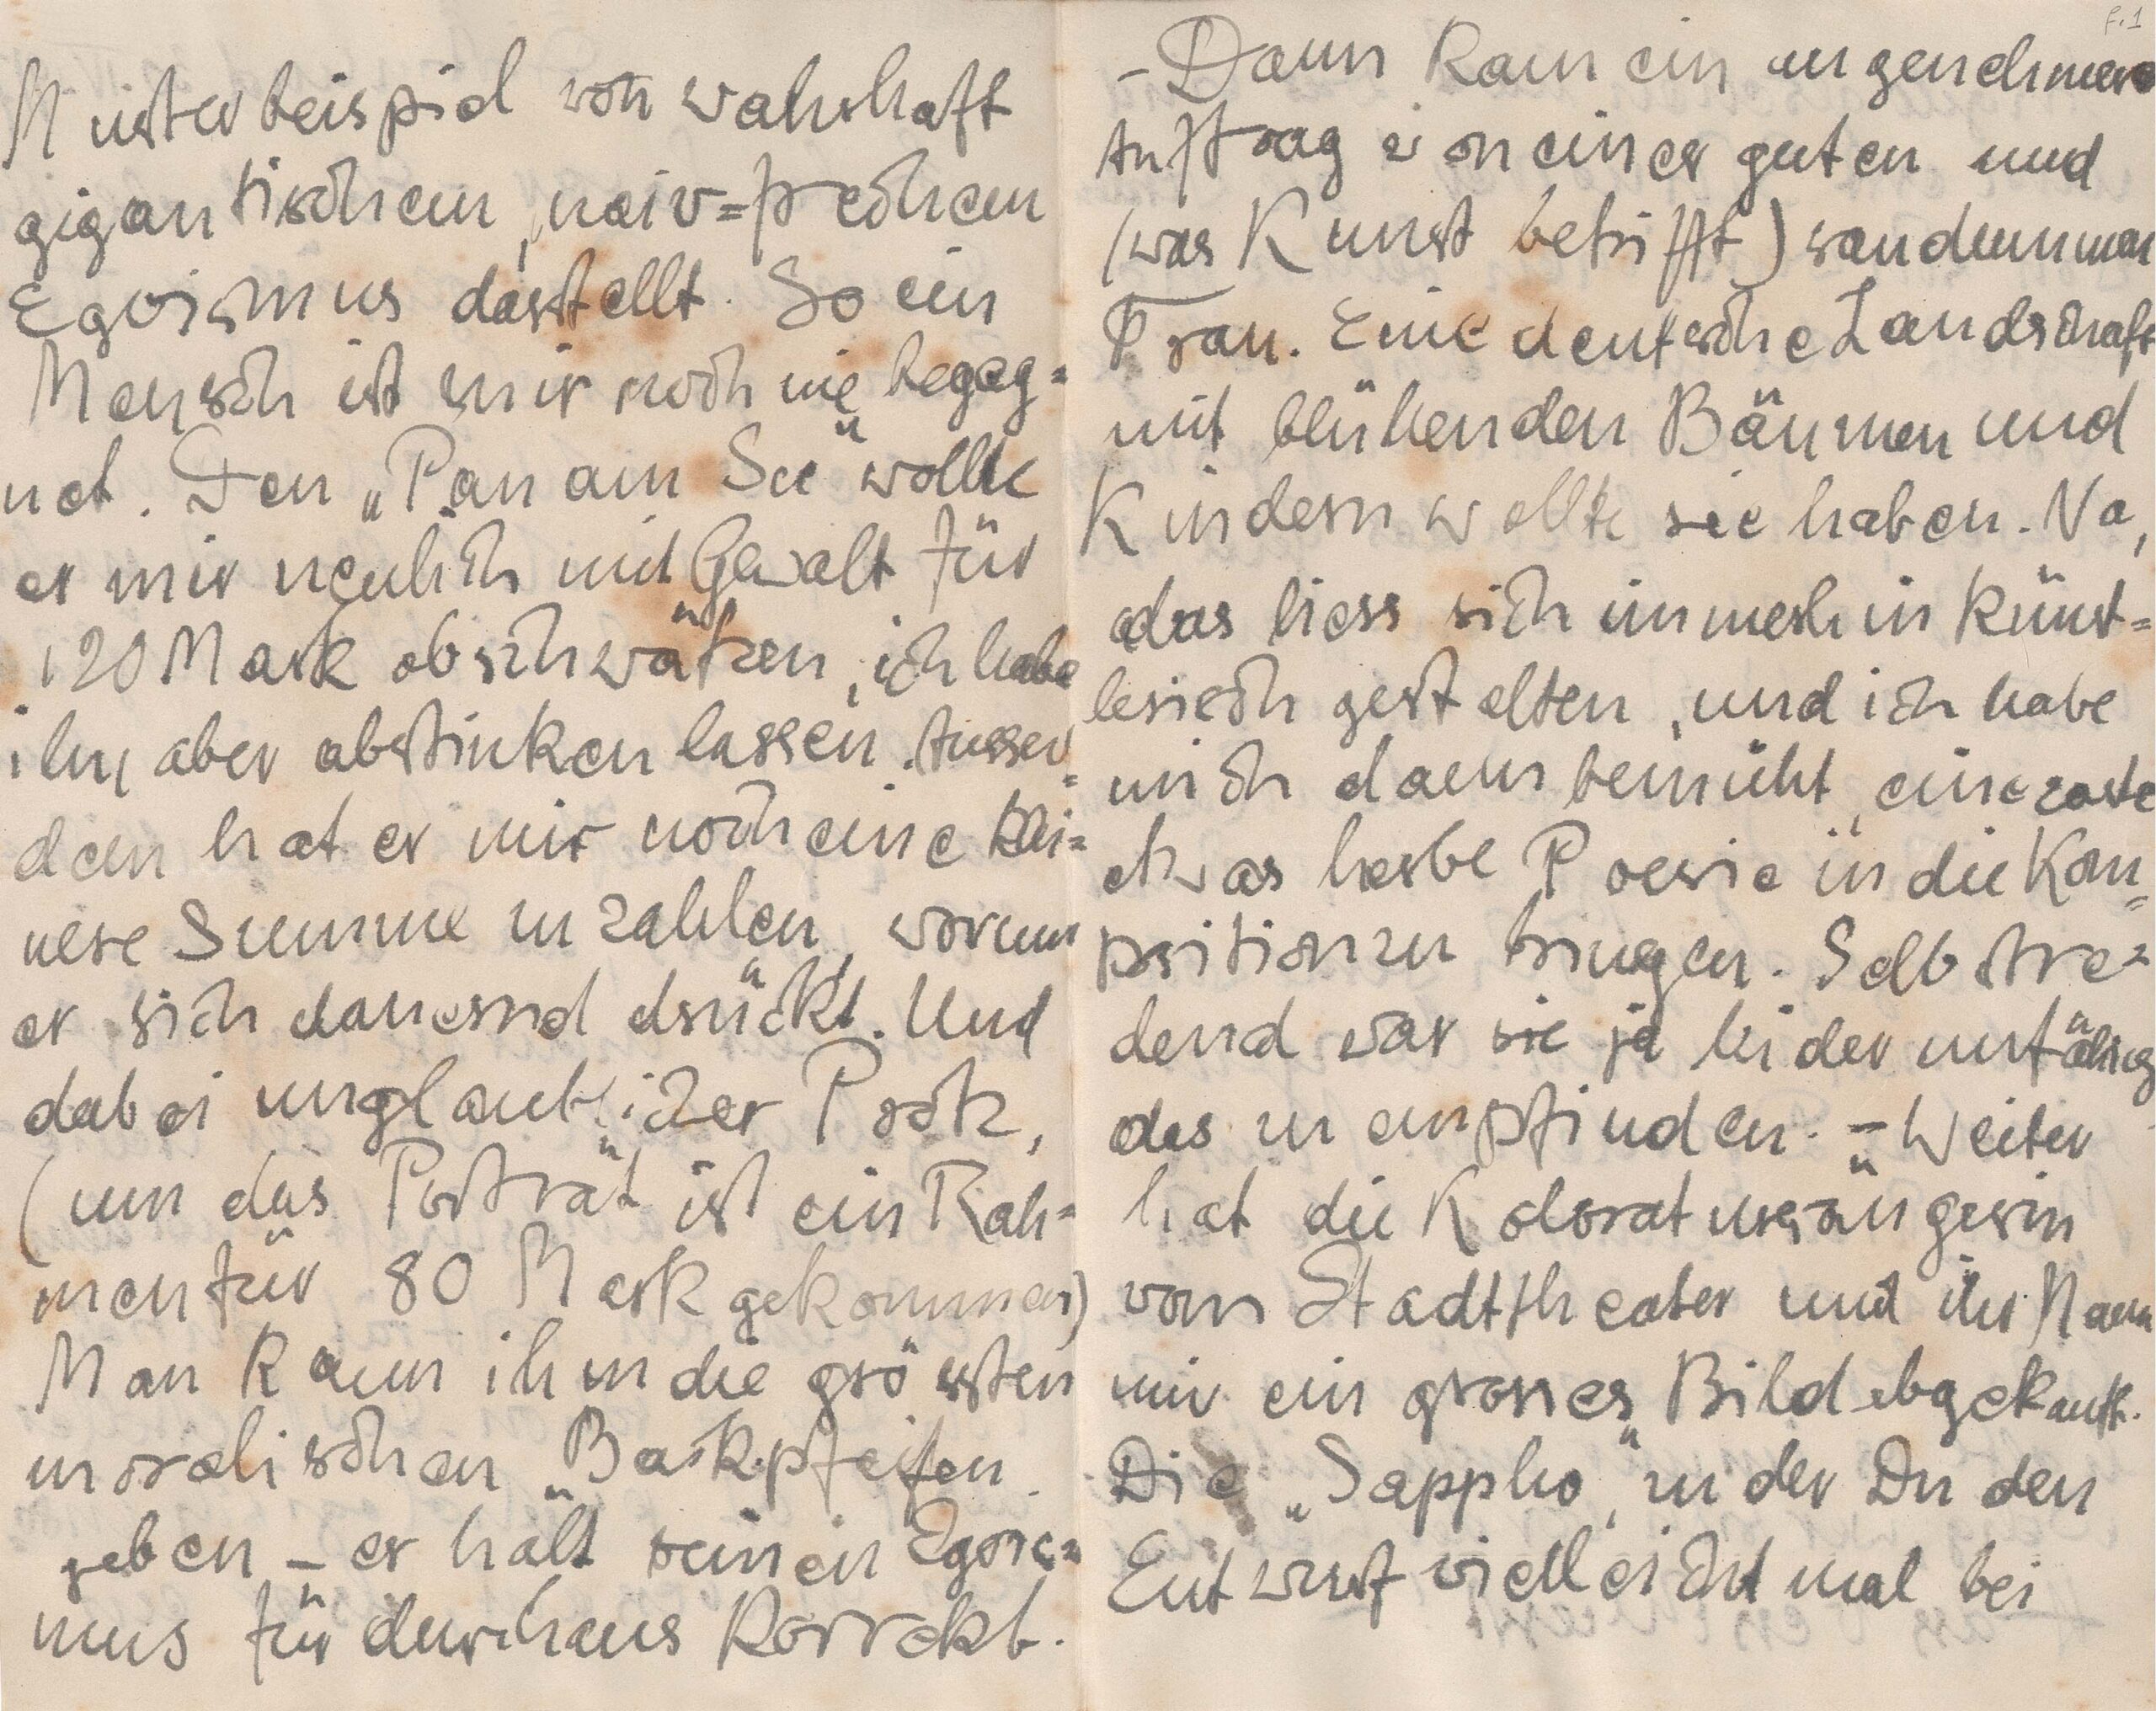 Musterbeispiel von wahrhaft
gigantischem, naiv=frechem
Egoismus darstellt. So ein
Mensch ist mir noch nie begeg=
net. Den „Pan am See" wollte
er mir neulich mit Gewalt für
120 Mark abschwätzen, ich habe
ihn aber abstinken lassen. Ausser=
dem hat er mir noch eine klei=
nere Summe zu zahlen, worum
er sich dauernd drückt. Und
dabei unglaublicher Protz,
(um das Porträt ist ein Rah=
men für 80 Mark gekommen)
Man kann ihm die grössten
moralischen „Backpfeifen
geben – er hält seinen Egois=
mus für durchaus korrekt.
f.1
– Dann kam ein angenehmer
Auftrag von einer guten und
(was Kunst betrifft) saudummen
Frau. Eine deutsche Landschaft
mit blühenden Bäumen und
Kindern wollte sie haben. Na,
das liess sich immerhin künst=
lerisch gestalten, und ich habe
mich dann bemüht, eine zarte
etwas herbe Poesie in die Kom=
position zu bringen. Selbstre=
dend war sie ja leider unfähig
das zu empfinden. – Weiter
hat die Koloratursängerin
vom Stadttheater und ihr Mann
mir ein grosses Bild abgekauft.
Die „Sappho", zu der Du den
Entwurf vielleicht mal bei